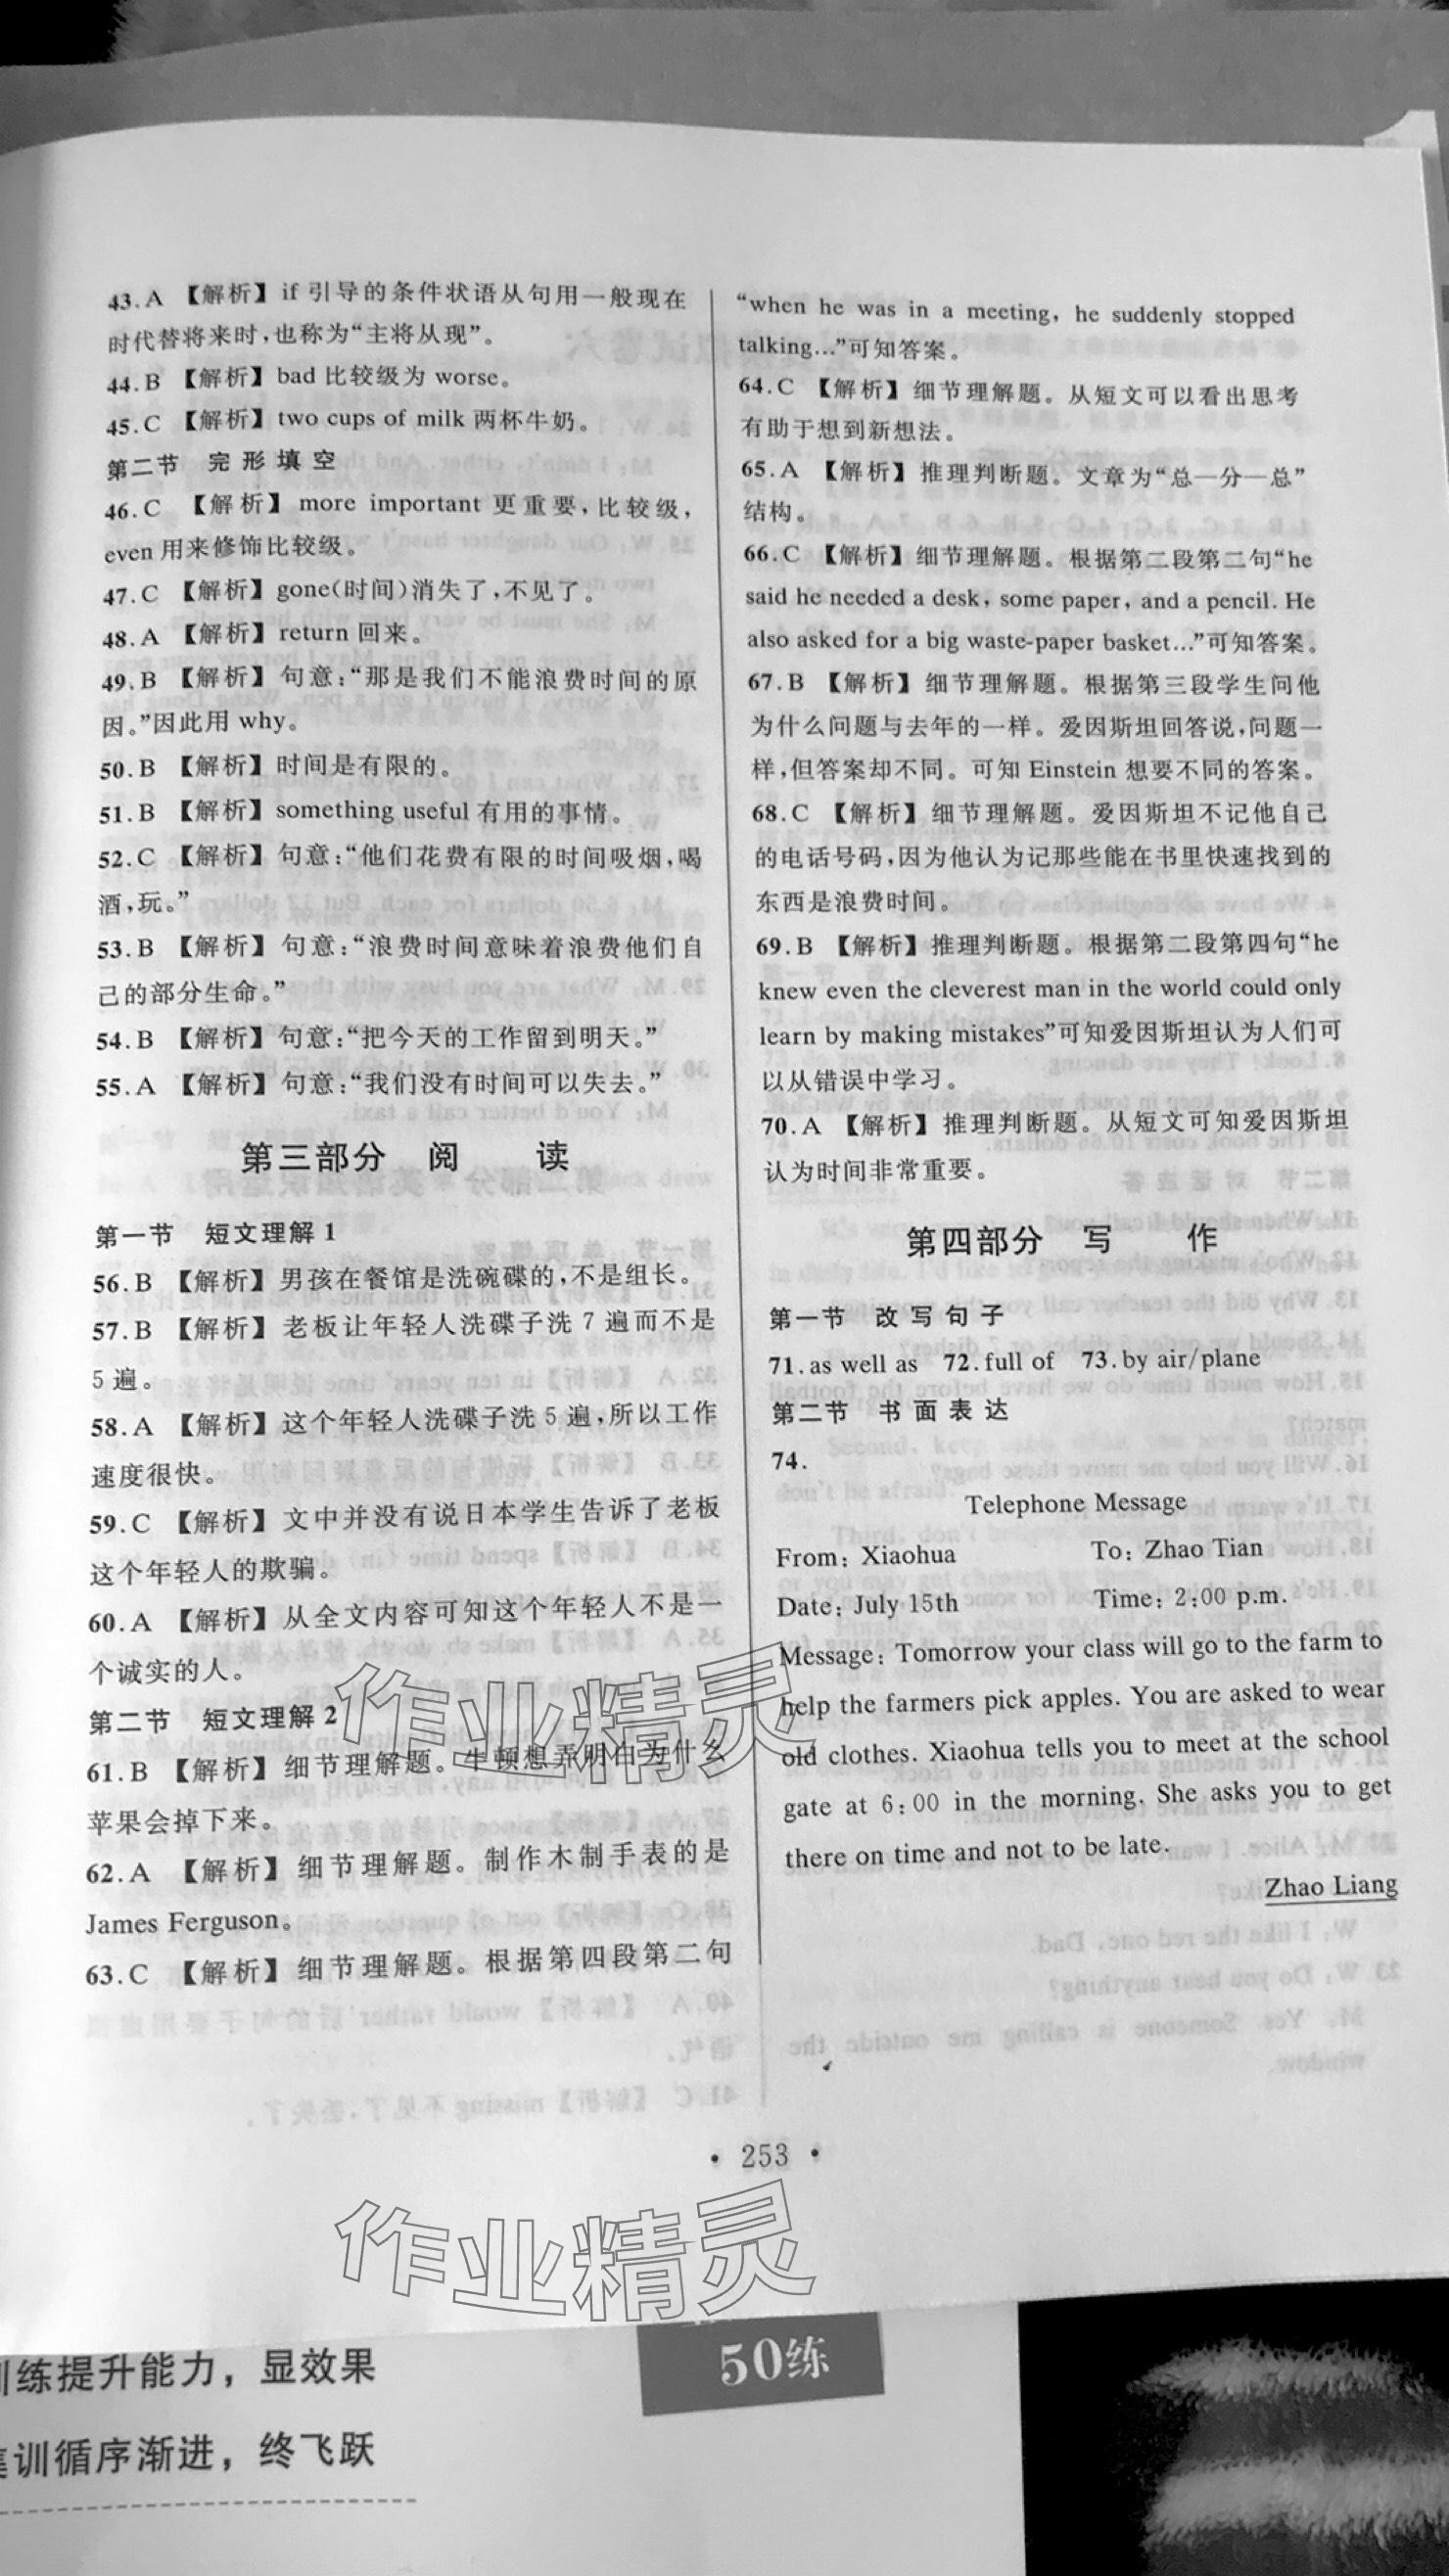 43.A 【解析】if 引导的条件状语从句用一般现在
时代替将来时,也称为“主将从现”。
44.B 【解析】bad 比较级为 worse。
45.C 【解析】two cups of milk 两杯牛奶。
第二节 完形填空
46.C 【解析】more important 更重要,比较级,
even 用来修饰比较级。
47.C 【解析】gone(时间)消失了,不见了。
48.A 【解析】return 回来。
49.B 【解析】句意:“那是我们不能浪费时间的原
因。”因此用 why。
50.B 【解析】时间是有限的。
51.B 【解析】something useful 有用的事情。
52.C 【解析】句意:“他们花费有限的时间吸烟,喝
酒,玩。”
53.B 【解析】句意:“浪费时间意味着浪费他们自
己的部分生命。”
54.B 【解析】句意:“把今天的工作留到明天。”
55.A 【解析】句意:“我们没有时间可以失去。”
第三部分 阅 读
第一节 短文理解 1
56.B 【解析】男孩在餐馆是洗碗碟的,不是组长。
57.B 【解析】老板让年轻人洗碟子洗 7 遍而不是
5 遍。
58.A 【解析】这个年轻人洗碟子洗 5 遍,所以工作
速度很快。
59.C 【解析】文中并没有说日本学生告诉了老板
这个年轻人的欺骗。
60.A 【解析】从全文内容可知这个年轻人不是一
个诚实的人。
第二节 短文理解 2
61.B 【解析】细节理解题。牛顿想弄明白为什么
苹果会掉下来。
62.A 【解析】细节理解题。制作木制手表的是
James Ferguson。
63.C 【解析】细节理解题。根据第四段第二句
“when he was in a meeting, he suddenly stopped
talking...”可知答案。
64.C 【解析】细节理解题。从短文可以看出思考
有助于想到新想法。
65.A 【解析】推理判断题。文章为“总—分—总”
结构。
66.C 【解析】细节理解题。根据第二段第二句“he
said he needed a desk, some paper, and a pencil. He
also asked for a big waste-paper basket...”可知答案。
67.B 【解析】细节理解题。根据第三段学生问他
为什么问题与去年的一样。爱因斯坦回答说,问题一
样,但答案却不同。可知 Einstein 想要不同的答案。
68.C 【解析】细节理解题。爱因斯坦不记他自己
的电话号码,因为他认为记那些能在书里快速找到的
东西是浪费时间。
69.B 【解析】推理判断题。根据第二段第四句“he
knew even the cleverest man in the world could only
learn by making mistakes”可知爱因斯坦认为人们可
以从错误中学习。
70.A 【解析】推理判断题。从短文可知爱因斯坦
认为时间非常重要。
第四部分 写 作
第一节 改写句子
71. as well as 72. full of 73. by air/plane
第二节 书面表达
74.
Telephone Message
From: Xiaohua To: Zhao Tian
Date: July 15th Time: 2:00 p.m.
Message: Tomorrow your class will go to the farm to
help the farmers pick apples. You are asked to wear
old clothes. Xiaohua tells you to meet at the school
gate at 6:00 in the morning. She asks you to get
there on time and not to be late.
Zhao Liang
· 253 ·
作业精灵
作业精灵
训练提升能力，显效果
集训循序渐进，终飞跃
50练